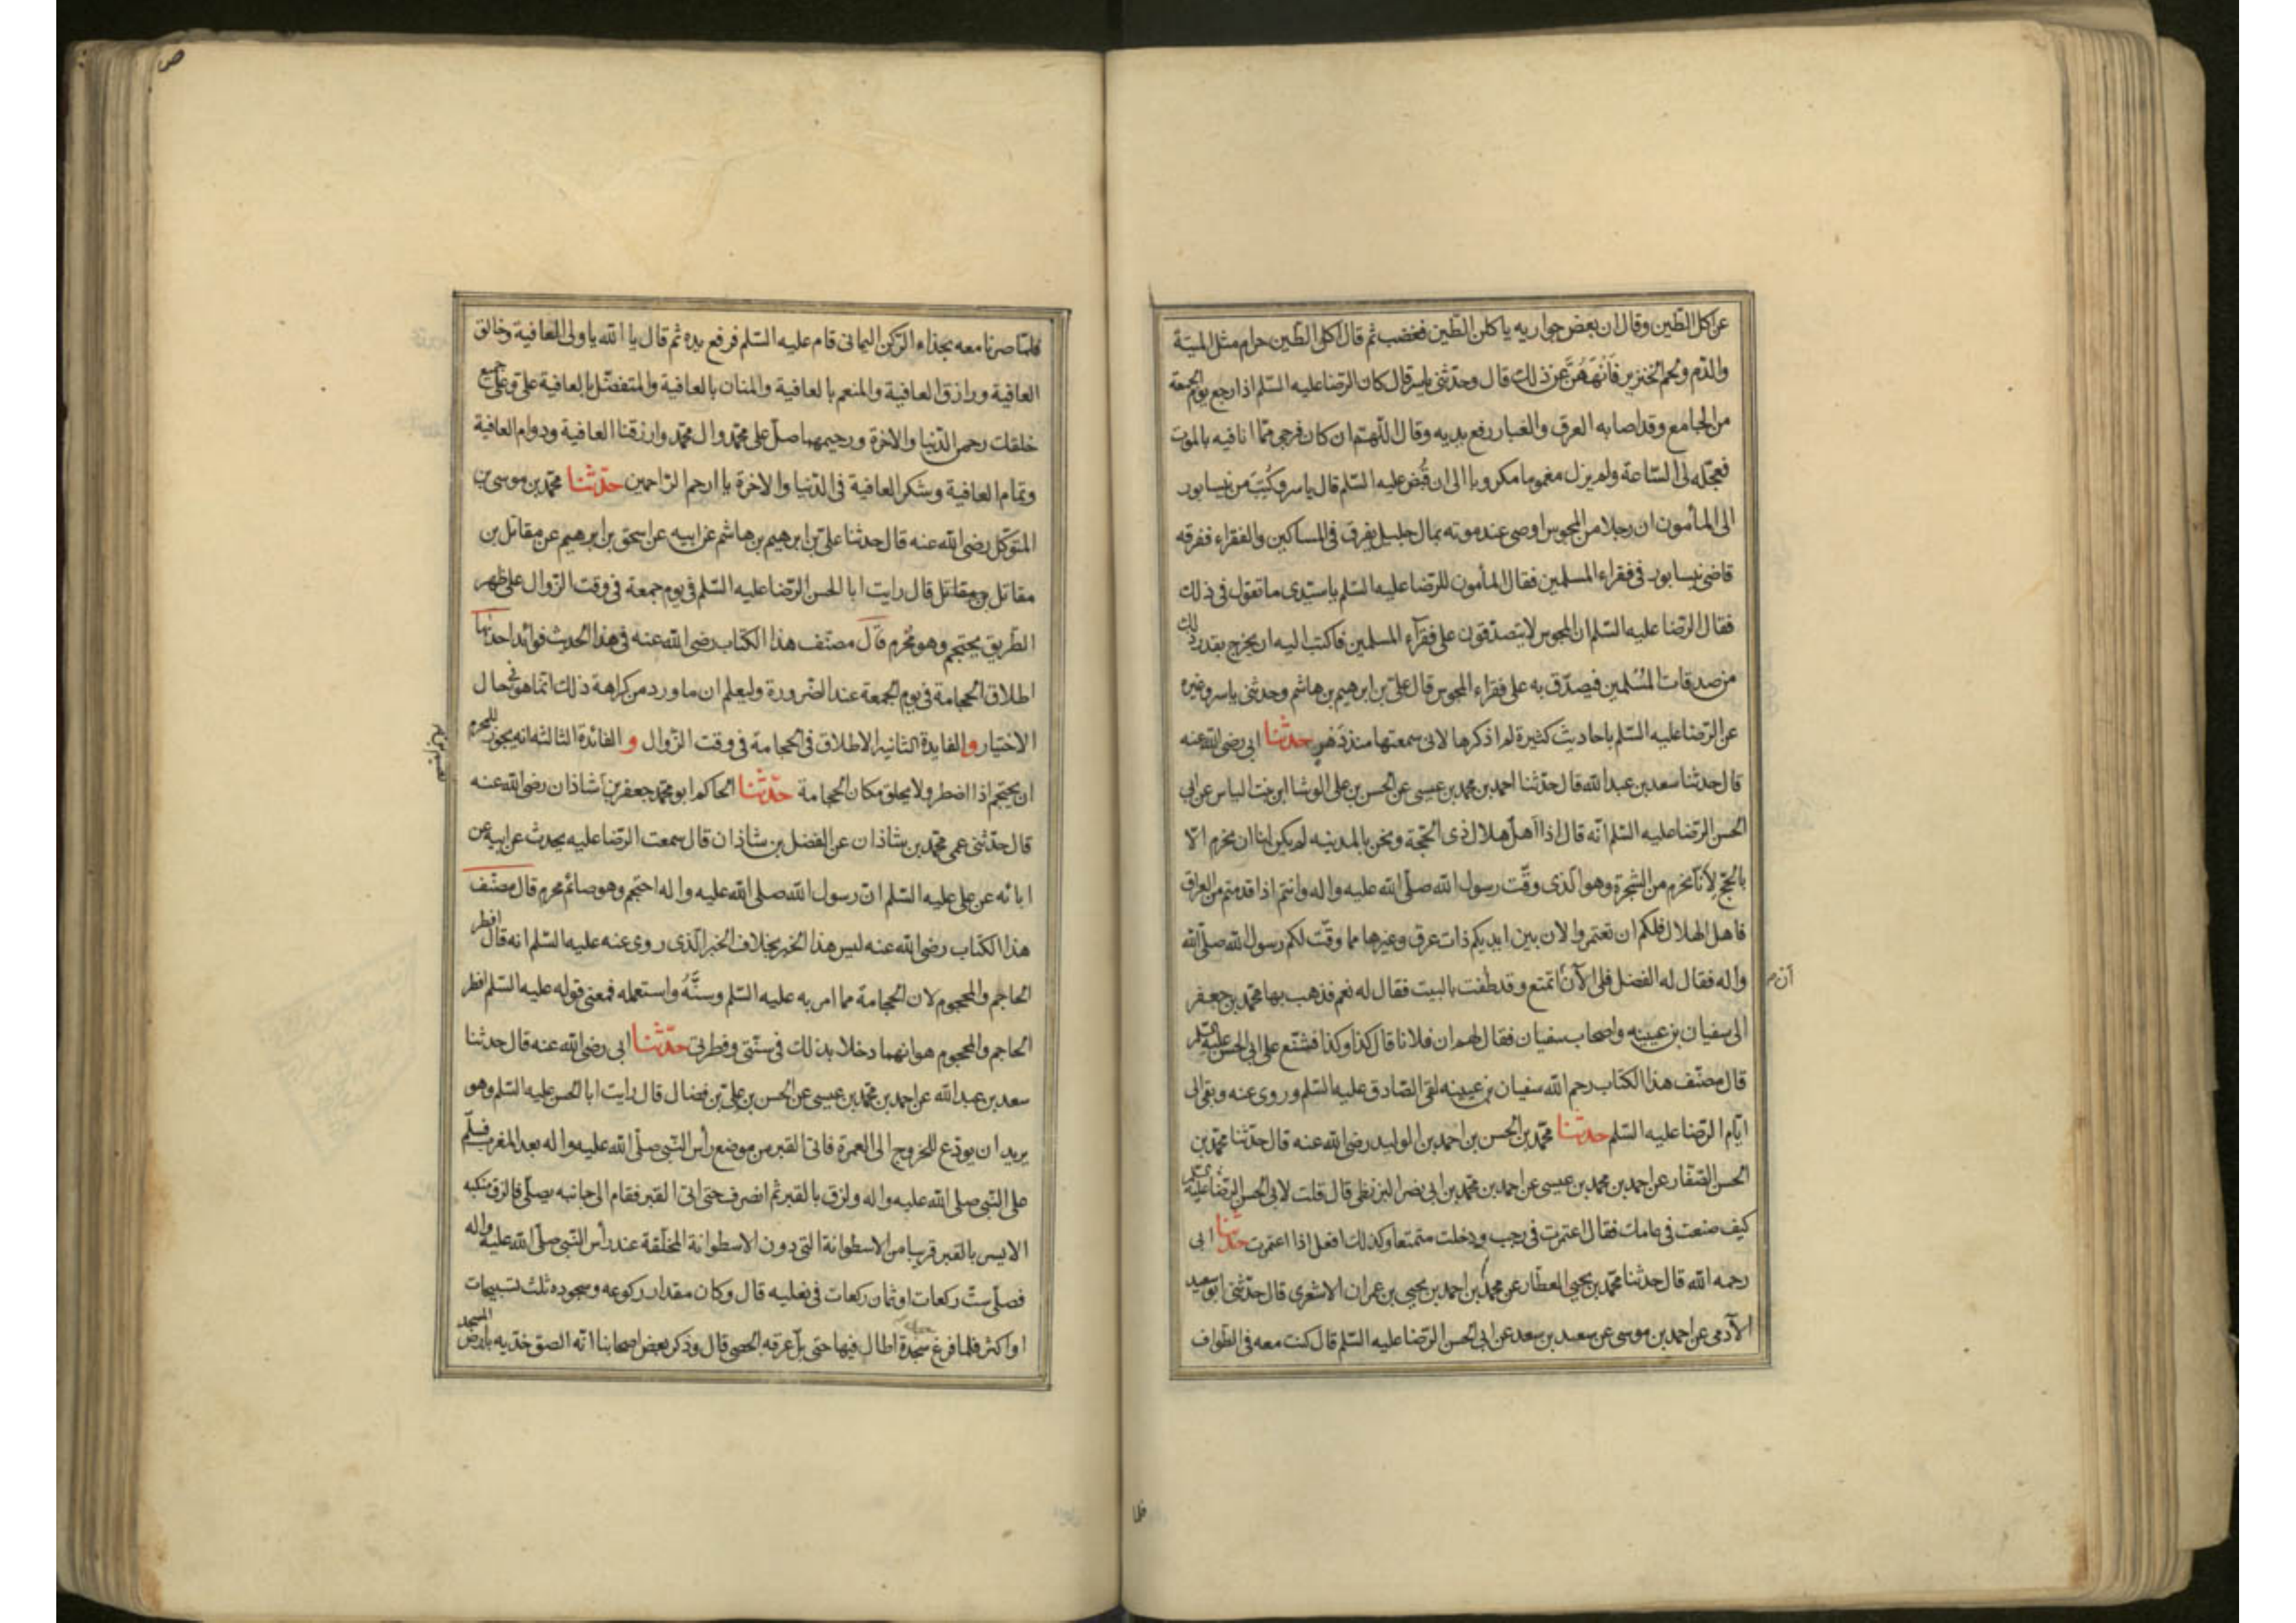 عن اكل الطين وقال ان بعض جواريه ياكلن الطين فغضب ثم قال اكل الطين حرام مثل الميتة
والدم ولحم الخنزير فَانْهَهُنَّ عن ذلك قال وحدّثنى ياسر قال كان الرضا عليه السّلم اذا رجع يوم الجمعة
من الجامع وقد اصابه العرق والغبار رفع يديه وقال اللّهمّ ان كان فرجى ممّا انا فيه بالموت
فعجّله لى السّاعة ولم يزل مغموما مكروبا الى ان قُبض عليه السّلم قال ياسر وكُتِبَ من نيسابور
الى المأمون ان رجلا من المجوس اوصى عند موته بمال جليل يفرق فى المساكين والفقراء ففرقه
قاضى نيسابور فى فقراء المسلمين فقال المأمون للرضا عليه السّلم يا سيّدى ما تقول فى ذلك
فقال الرضا عليه السّلم ان المجوس لا يتصدّقون على فقرآء المسلمين فاكتب اليه ان يخرج بقدر ذلك
من صدقات المُسْلمين فيصدّق به على فقراء المجوس قال علىّ بن ابرهيم بن هاشم وحدثنى ياسر وغيره
عن الرّضا عليه السّلم باحاديث كثيرة لم اذكرها لانى سمعتها منذ دَهرٍ حدثنا ابى رضى الله عنه
قال حدثنا سعد بن عبد الله قال حدّثنا احمد بن محمد بن عيسى عن الحسن بن على الوشا ابن بنت الياس عن ابى
الحسن الرضا عليه السّلم انّه قال اذا اهلّ هلال ذى الحجّة ونحن بالمدينه لم يكن لنا ان نحرم الّا
بالحجّ لأنّا نحرم من الشجرة وهو الّذى وقّت رسول الله صلّى الله عليه واله وانتم اذا قدمتم من العراق
فاهل الهلال فلكم ان تعتمروا لان بين ايديكم ذات عرق وغيرها مما وقّت لكم رسول الله صلّى الله
واله فقال له الفضل فلى الآن اتمتع وقد طفت بالبيت فقال له نعم فذهب بها محمّد بن جعفر
الى سفيان بن عيينه واصحاب سفيان فقال لهم ان فلانا قال كذا وكذا فشنّع على ابى الحسن عليه السّلم
قال مصنّف هذا الكتاب رحم الله سفيان بن عيينه لقى الصّادق عليه السّلم وروى عنه وبقى الى
ايّام الرضا عليه السّلم حدثنا محمّد بن الحسن بن احمد بن الوليد رضى الله عنه قال حدّثنا محمّد بن
الحسن الصّفّار عن احمد بن محمد بن عيسى عن احمد بن محمّد بن ابى نصر البزنطى قال قلت لابى الحسن الرضا عليه السّلم
كيف صنعت فى عامك فقال اعتمرت فى رجب ودخلت متمتعا وكذلك افعل اذا اعتمرت حدّثنا ابى
رحمه الله قال حدثنا محمّد بن يحيى العطّار عن محمد بن احمد بن يحيى بن عمران الاشعرى قال حدّثنى ابو سعيد
الآدمى عن احمد بن موسى عن سعيد بن سعد عن ابى الحسن الرّضا عليه السّلم قال كنت معه فى الطواف
فلما
فلمّا صرنا معه بحذاء الرّكن اليمانى قام عليه السّلم فرفع يده ثم قال يا الله يا ولى العافية وخالق
العافية ورازق العافية والمنعم بالعافية والمنان بالعافية والمتفضّل بالعافية علىّ وعلى جميع
خلقك رحمن الدّنيا والاخرة ورحيمهما صلّ على محمّد وال محمّد وارزقنا العافية ودوام العافية
وتمام العافية وشكر العافية فى الدّنيا والاخرة يا ارحم الرّاحمين حدّثنا محمّد بن موسى بن
المتوكّل رضى الله عنه قال حدثنا علىّ بن ابرهيم بن هاشم عن ابيه عن اسحق بن ابرهيم عن مقاتل بن
مقاتل بن مقاتل قال رايت ابا الحسن الرّضا عليه السّلم فى يوم جمعة فى وقت الزّوال على ظهر
الطّريق يحتجم وهو مُحرم قال مصنّف هذا الكتاب رضى الله عنه فى هذا الحديث فوائد احدٰيها
اطلاق الحجامة فى يوم الجمعة عند الضّرورة وليعلم ان ما ورد من كراهة ذلك انّما هو فى حال
الاختيار والفايدة الثانية الاطلاق فى الحجامة فى وقت الزّوال و الفائدة الثالثه انه يجوز للمحرم
ان يحتجم اذا اضطر ولا يحلق مكان الحجامة حدّثنا الحاكم ابو محمّد جعفر بن شاذان رضى الله عنه
قال حدّثنى عمى محمّد بن شاذان عن الفضل بن شاذان قال سمعت الرّضا عليه يحدث عن ابيه عن
ابائه عن على عليه السّلم انّ رسول الله صلى الله عليه واله احتجم وهو صائم محرم قال مصنّف
هذا الكتاب رضى الله عنه ليس هذا الخبر بخلاف الخبر الّذى روى عنه عليه السّلم انه قال افطر
الحاجم والمحجوم لان الحجامة مما امر به عليه السّلم وسنَّهُ واستعمله فمعنى قوله عليه السّلم افطر
الحاجم والمحجوم هو انهما دخلا بذلك فى سنّتى وفطرتى حدّثنا ابى رضى الله عنه قال حدثنا
سعد بن عبد الله عن احمد بن محمّد بن عيسى عن الحسن بن علىّ بن فضال قال رايت ابا الحسن عليه السّلم وهو
يريد ان يودّع للخروج الى العمرة فاتى القبر من موضع رأس النّبى صلّى الله عليه واله بعد المغرب فسلّم
على النّبى صلى الله عليه واله ولزق بالقبر ثم انصرف حتى اتى القبر فقام الى جانبه يصلّى فالزق منكبه
الايسر بالقبر قريبا من الاسطوانة التى دون الاسطوانة المخلّقة عند رأس النّبى صلّى الله عليه واله
فصلّى ستّ ركعات او ثمان ركعات فى نعليه قال وكان مقدار ركوعه وسجوده ثلث تسبيحات
او اكثر فلما فرغ سجدة اطال فيها حتى بلّ عرقه الحصى قال وذكر بعض اصحابنا انّه الصق خدّيه بارض المسجد